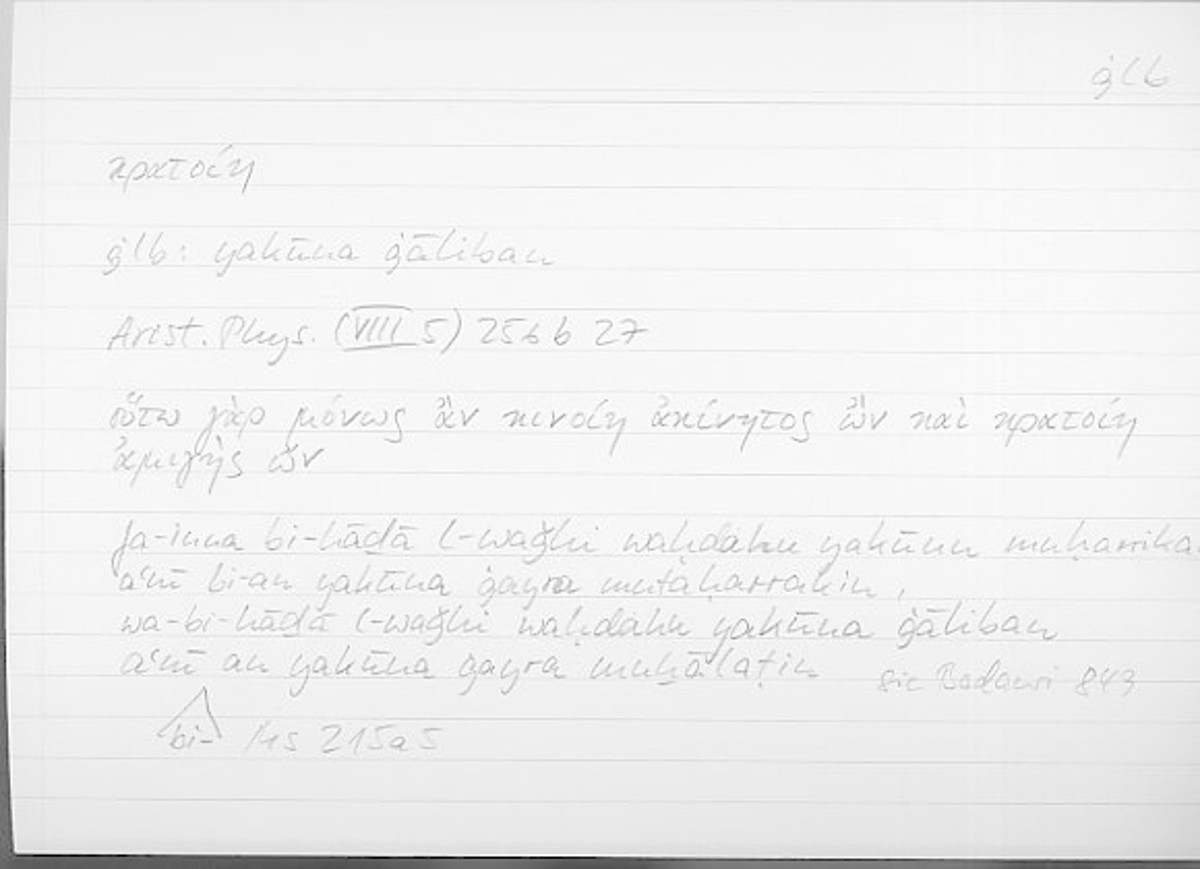 ġlb
κρατοίη
ġlb: yakūna ġāliban
Arist. Phys. (VIII 5) 256 b 27
οὕτω γὰρ μόνως ἂν κινοίη ἀκίνητος ὢν καὶ κρατοίη
ἀμιγὴς ὤν
fa-inna bi-hāḏā l-waǧhi waḥdahu yakūnu muḥarrika
aʿnī bi-an yakūna ġayra mutaḥarrakin,
wa-bi-hāḏā l-waǧhi waḥdahu yakūna ġāliban
aʿnī an yakūna ġayra muḫālaṭin sic Badawi 843
bi- Hs 215a5